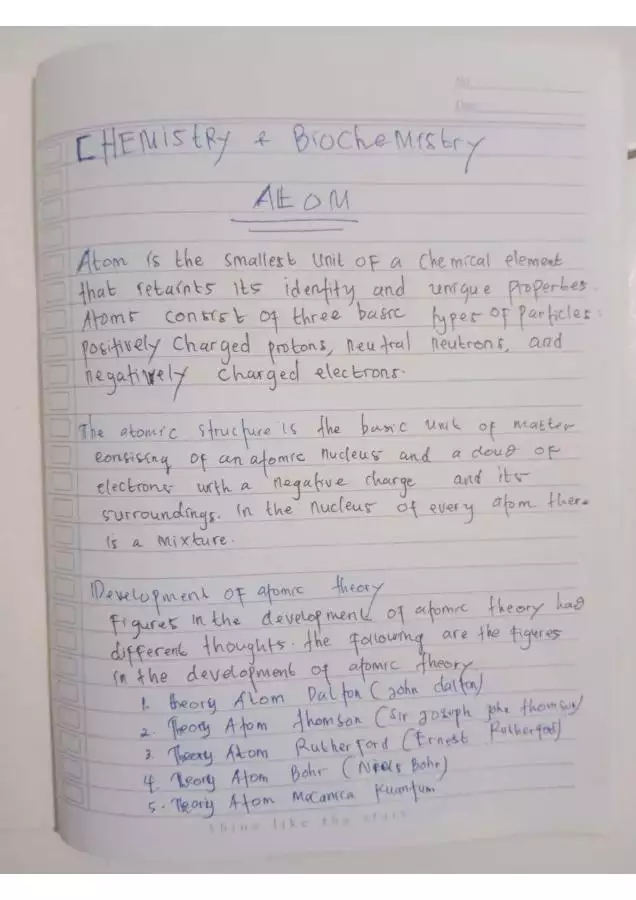 No
Date
CHEMISTRY & BIOCHEMISTRY
ATOM
Atom is the smallest unit of a chemical element
that retaints its identity and unique properties.
Atoms consist of three basic types of particles
positively charged protons, neutral neutrons, and
negatively charged electrons.
The atomic structure is the basic unit of matter
consising of an atomic nucleus and a cloud of
electrons with a negative charge and its
surroundings. In the nucleus of every atom there
is a mixture.
Development of atomic theory
Figures in the development of atomic theory had
different thoughts. the following are the figures
in the development of atomic theory
1. theory Atom Dalton (john dalton)
2. Theory Atom thomson (Sir joseph john thomson)
3. Theory Atom Rutherford (Ernest Rutherford)
4. Theory Atom Bohr (Niels Bohr)
5. Theory Atom Mecanica Kuantum
think like the stars